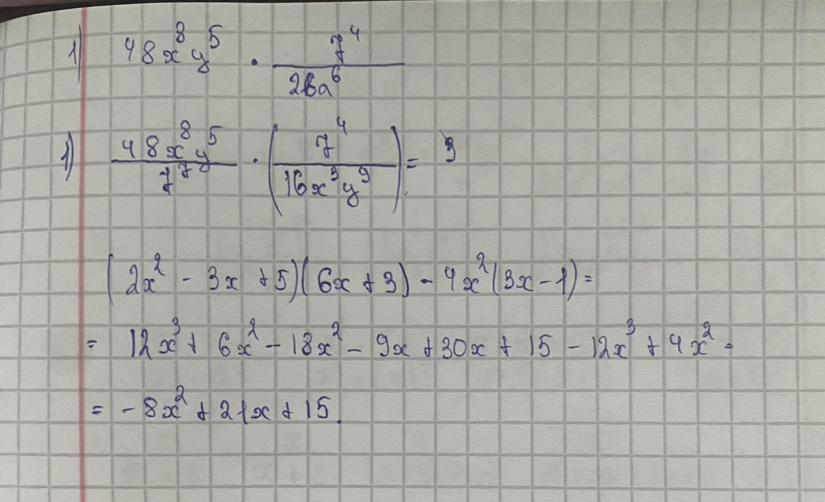 1) 48x⁸y⁵ · 7⁴/26a⁶
1) 48x⁸y⁵/7⁷ · (7⁴/16x³y⁹) = 3
(2x² - 3x + 5)(6x + 3) - 4x²(3x - 1) =
= 12x³ + 6x² - 18x² - 9x + 30x + 15 - 12x³ + 4x² =
= -8x² + 21x + 15.